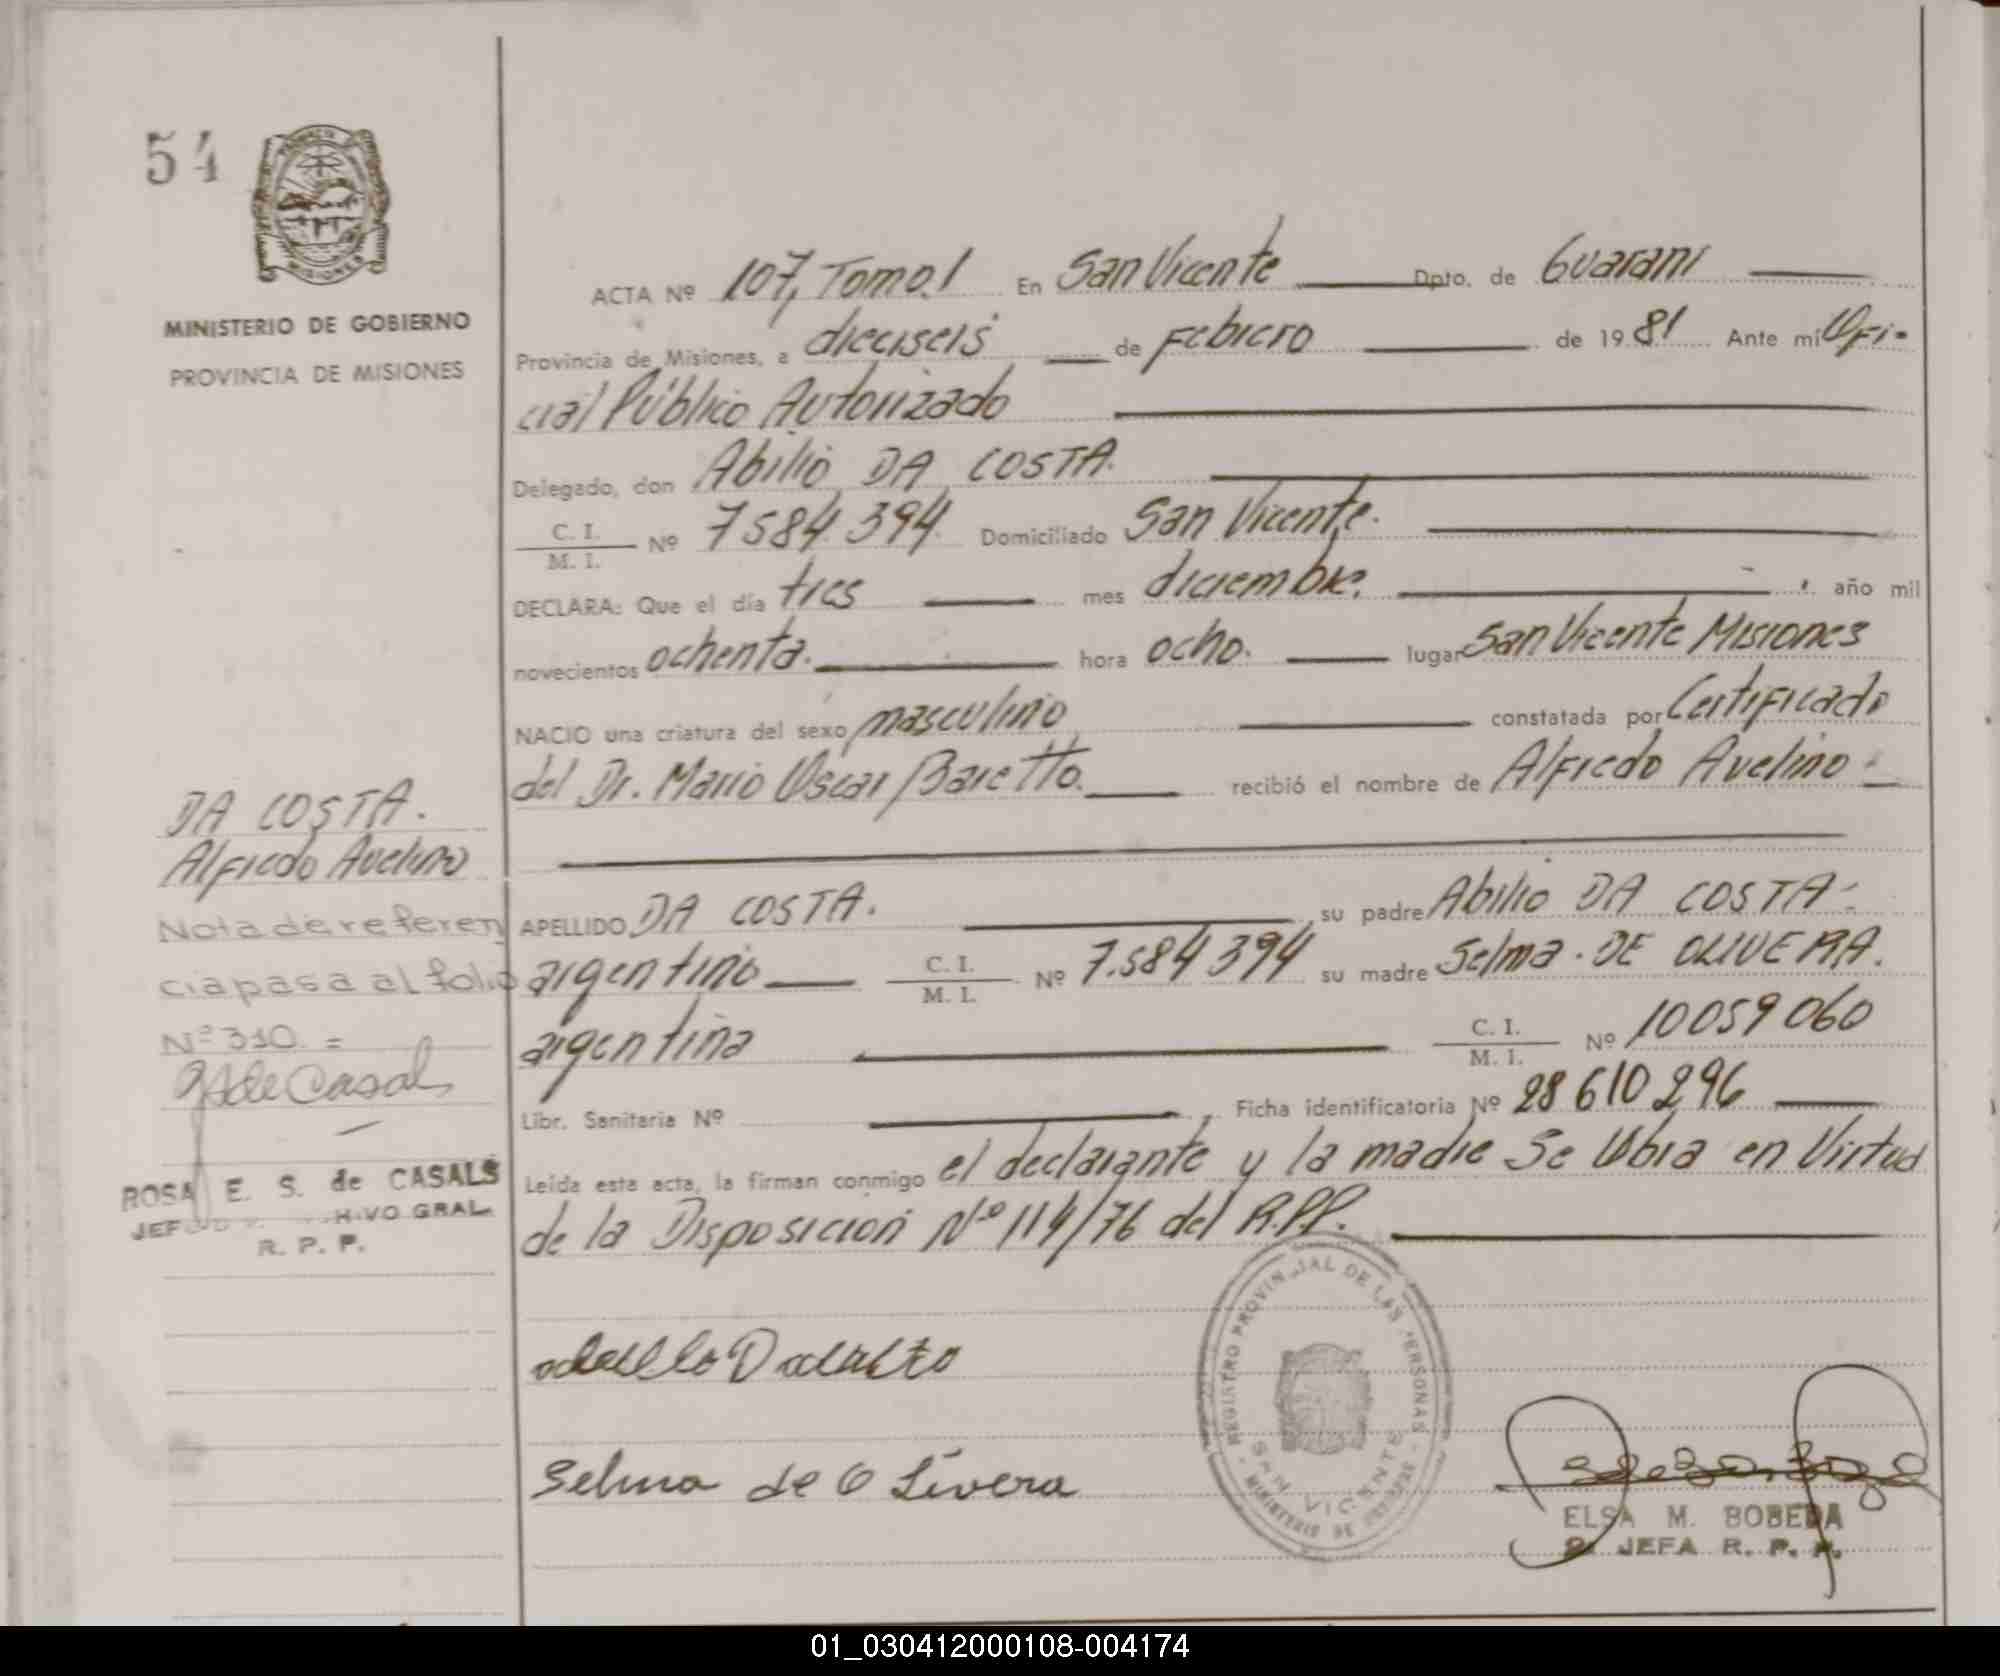 54
MINISTERIO DE GOBIERNO
PROVINCIA DE MISIONES
ACTA Nº 107, Tomo.1 En San Vicente Dpto. de Guarani
Provincia de Misiones, a dieciseis de Febrero de 1981 Ante mi Ofi-
cial Público Autorizado
Delegado, don Abilio DA COSTA.
C. I.
M. I.
Nº 7584394. Domiciliado San Vicente.
DECLARA: Que el día tres mes diciembre. año mil
novecientos ochenta. hora ocho. lugar San Vicente Misiones
NACIO una criatura del sexo masculino constatada por Certificado
del Dr. Mario Oscar Baretto. recibió el nombre de Alfredo Avelino
DA COSTA.
Alfredo Avelino
APELLIDO DA COSTA. su padre Abilio DA COSTA-
argentino C. I.
M. I.
Nº 7.584394 su madre Selma. DE OLIVERA.
argentina C. I.
M. I.
Nº 10059060
Libr. Sanitaria Nº Ficha identificatoria Nº 28610296
Leída esta acta, la firman conmigo el declarante y la madre Se labra en Virtud
de la Disposición Nº 114/76 del R.P.P.
Nota de referen
cia pasa al folio
Nº 310. =
ROSA E. S. de CASALS
GRAL.
R. P. P.
Selma de O Livera
REGISTRO PROVINCIAL DE LAS PERSONAS
SAN VICENTE
MINISTERIO DE GOBIERNO
ELSA M. BOBEDA
JEFA R. P. P.
01_030412000108-004174